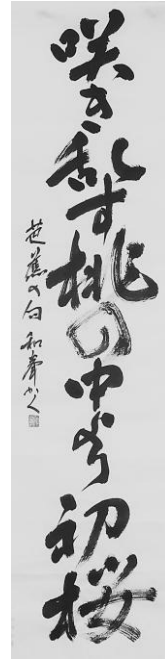 咲き乱す桃の中より初桜
芭蕉の句 和聲かく